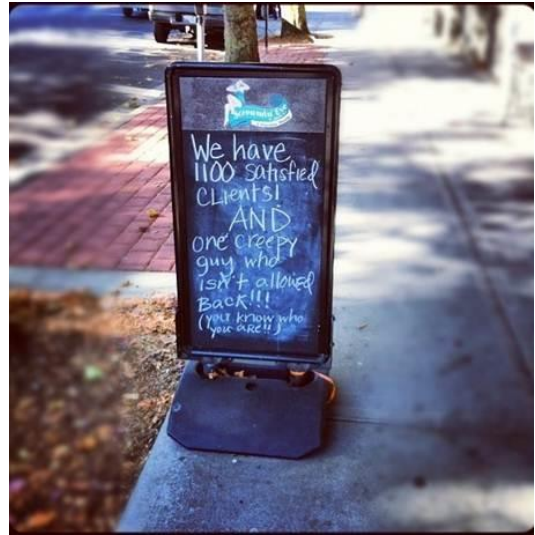 We have
1100 satisfied
CLients!
AND
one creepy
guy who
isn't allowed
Back!!!
(you know who
you are!!)